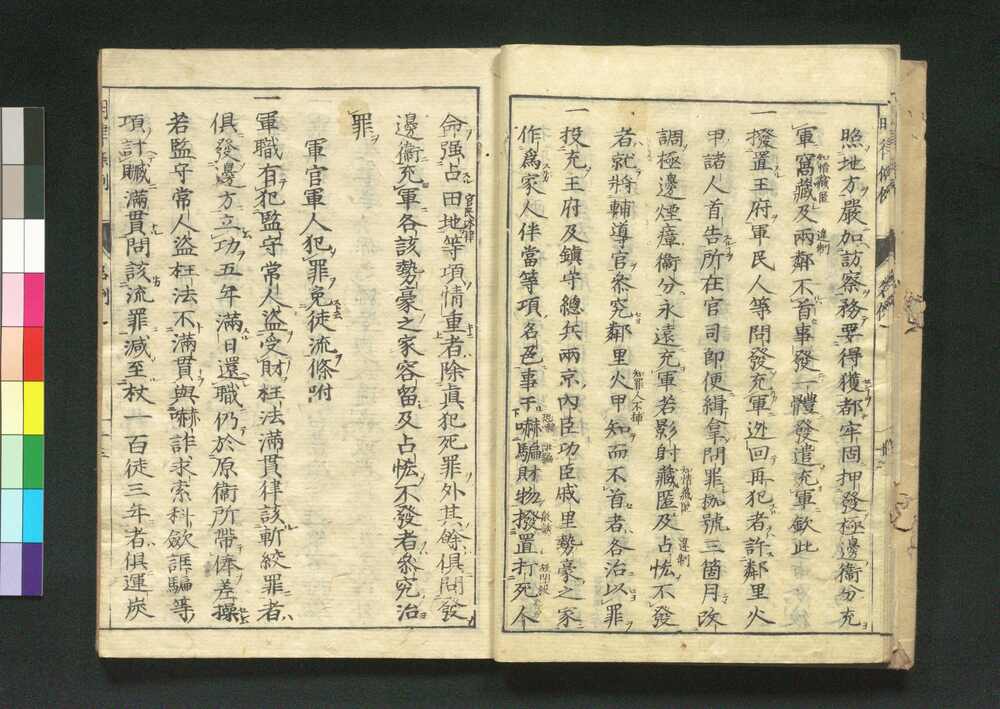 照地方嚴加訪察務要得獲都牢固押發極邊衞分充
軍窩藏及兩鄰不首事發一體發遣充軍欽此
知情藏匿
違制
一撥置王府軍民人等問發充軍逃回再犯者許鄰里火
甲諸人首告所在官司即便緝拿問罪枷號三箇月改
調極邊煙瘴衞分永遠充軍若影射藏匿及占恡不發
知情藏匿
違制
者就將輔導官叅究鄰里火甲知而不首者各治以罪
知罪人不捕
一投充王府及鎭守總兵兩京內臣功臣戚里勢豪之家
作爲家人伴當等項名色事干嚇騙財物撥置打死人
恐嚇
詐騙
命强占田地等項情重者除眞犯死罪外其餘俱問發
邊衞充軍各該勢豪之家容留及占恡不發者叅究治
罪
軍官軍人犯罪免徒流條附
一軍職有犯監守常人盜受財枉法滿貫律該斬絞罪者
俱發邊方立功五年滿日還職仍於原衞所帶俸差操
若監守常人盜枉法不滿貫與嚇詐求索科歛誆騙等
項計贓滿貫問該流罪減至杖一百徒三年者俱運炭